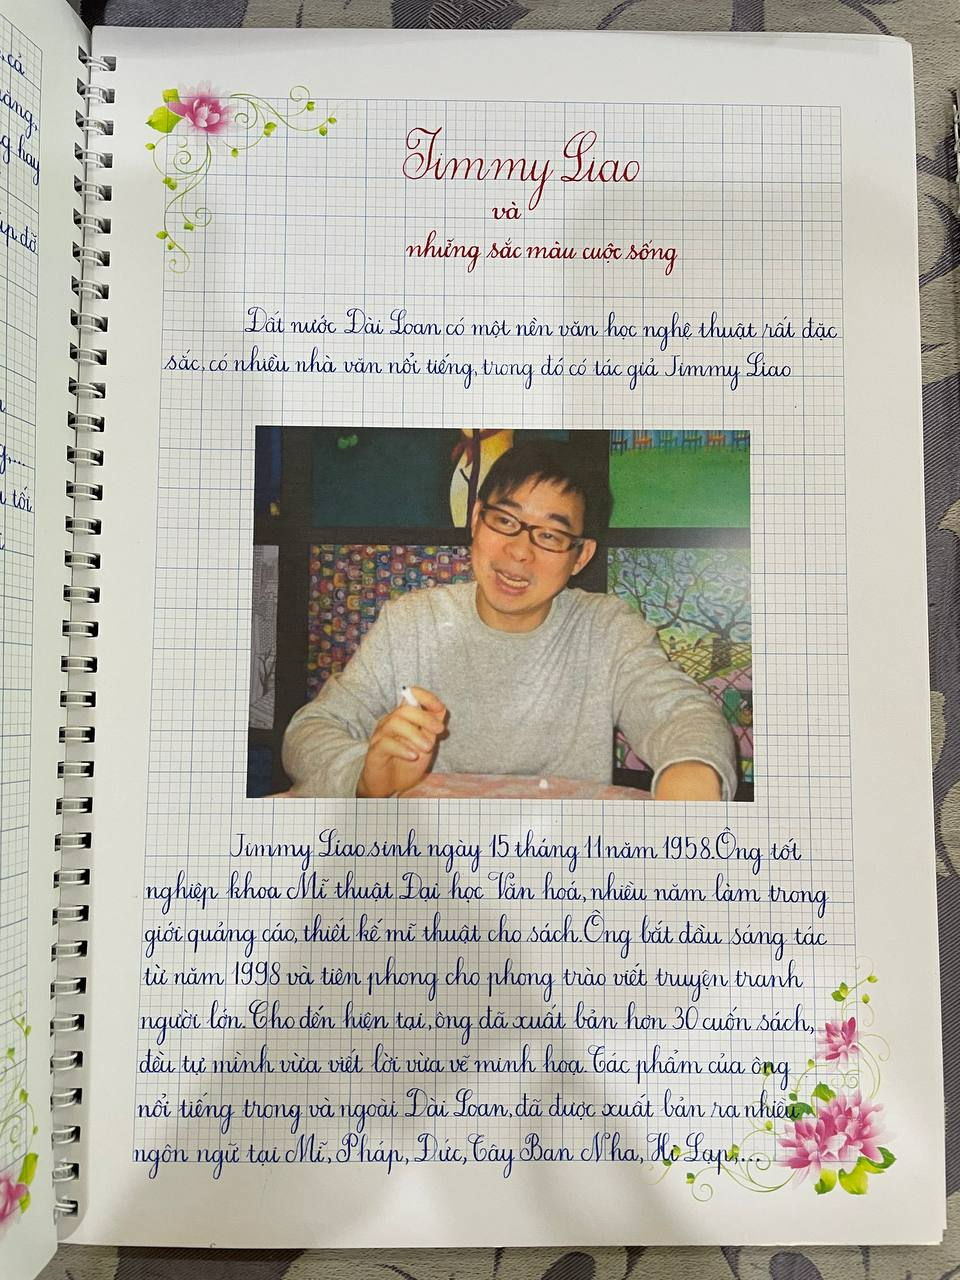 cả
hay
tối
Jimmy Liao
và
những sắc màu cuộc sống
Đất nước Đài Loan có một nền văn học nghệ thuật rất đặc
sắc, có nhiều nhà văn nổi tiếng, trong đó có tác giả Jimmy Liao
Jimmy Liao sinh ngày 15 tháng 11 năm 1958. Ông tốt
nghiệp khoa Mĩ thuật Đại học Văn hoá, nhiều năm làm trong
giới quảng cáo, thiết kế mĩ thuật cho sách. Ông bắt đầu sáng tác
từ năm 1998 và tiên phong cho phong trào viết truyện tranh
người lớn. Cho đến hiện tại, ông đã xuất bản hơn 30 cuốn sách,
đều tự mình vừa viết lời vừa vẽ minh hoạ. Tác phẩm của ông
nổi tiếng trong và ngoài Đài Loan, đã được xuất bản ra nhiều
ngôn ngữ tại Mĩ, Pháp, Đức, Tây Ban Nha, Hi Lạp,...